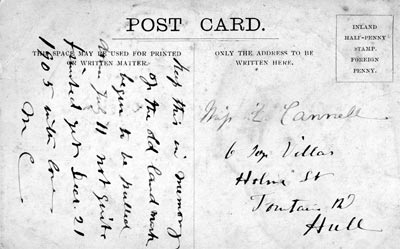 POST CARD.
THIS SPACE MAY BE USED FOR PRINTED
OR WRITTEN MATTER.
Keep this in memory
of the old land mark
begun to be pulled
down July 11 not quite
finished yet Decr. 21
1905 with love
M C
ONLY THE ADDRESS TO BE
WRITTEN HERE.
INLAND
HALF-PENNY
STAMP.
FOREIGN
PENNY.
Miss Cannell
6 Ivy Villas
Holme St
Fountain Rd
Hull